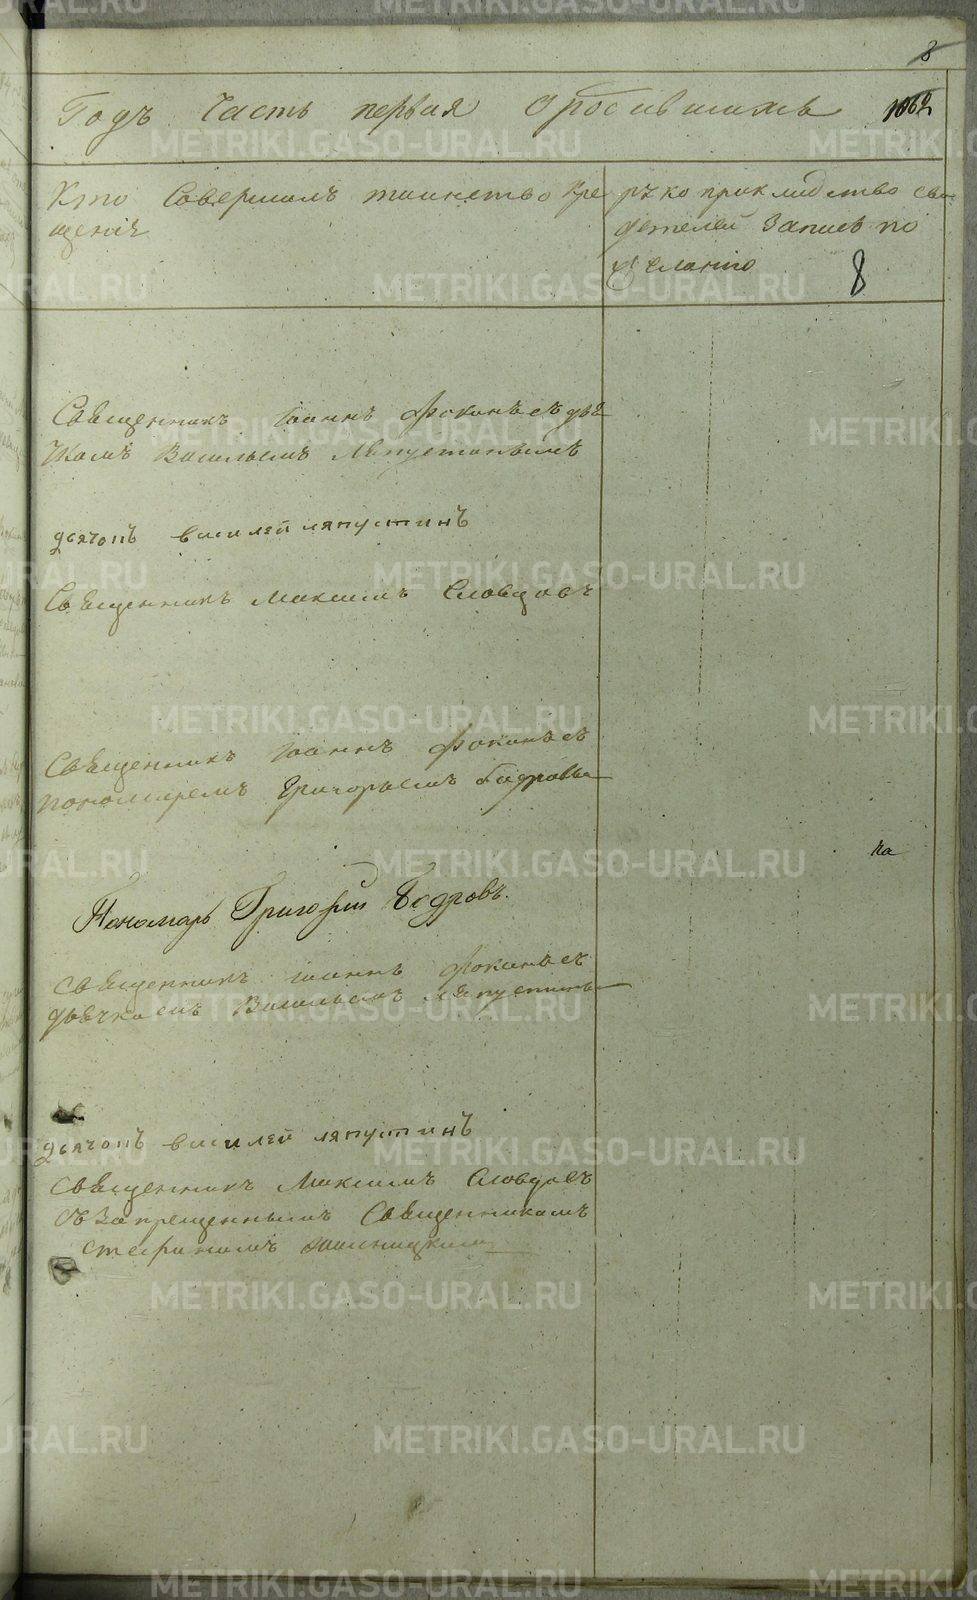 8
Годъ Часть первая О родившихся 1062
Кто Совершалъ таинство Кре
щенія
рукоприкладство сви
детелей Запись по
желанію
8
Священникъ Іоаннъ Фокинъ съ дья
чкомъ Васильемъ Ляпустинымъ
дьячокъ василей ляпустинъ
Священникъ Максимъ Словцовъ
Священникъ Іоаннъ Фокинъ съ
пономаремъ Григорьемъ Бодровы
Пономарь Григорій Бодровъ.
священникъ Іоаннъ Фокинъ съ
дьячкомъ Васильемъ Ляпустины
дьячокъ василей ляпустинъ
священникъ Максимъ Словцовъ
съ Запрещеннымъ Священникомъ
Стефаномъ
на
METRIKI.GASO-URAL.RU